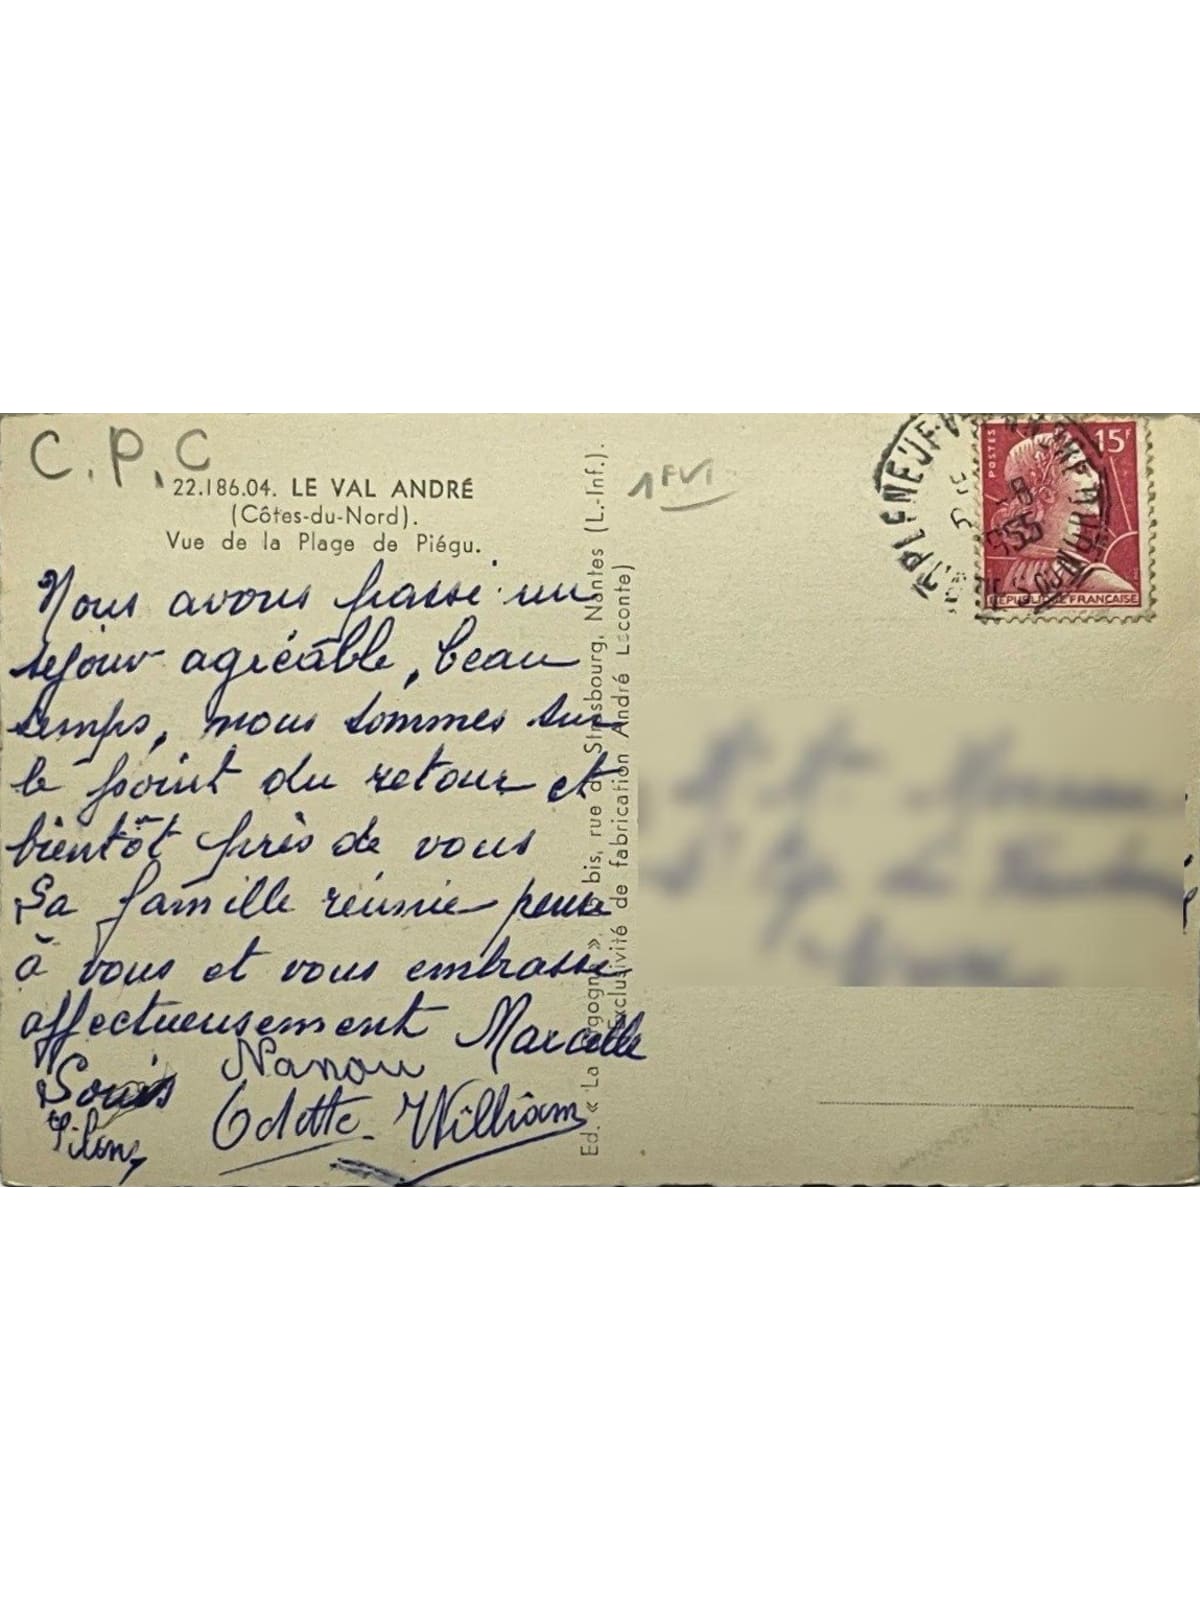 C.P.C
22.186.04. LE VAL ANDRÉ
(Côtes-du-Nord).
Vue de la Plage de Piégu.
Nous avons passé un
séjour agréable, beau
temps, nous sommes sur
le point du retour et
bientôt près de vous
La famille réunie pense
à vous et vous embrasse
affectueusement Marcelle
Louis Nanou
Odette William
Ed. « La bis, rue Strasbourg, Nantes (L.-Inf.).
Exclusivité de fabrication André Leconte)
1 FV1
POSTES
15F
RÉPUBLIQUE FRANÇAISE
PLENEUF-VAL-ANDRE
1955